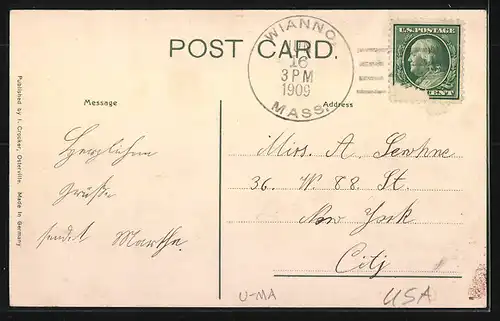 POST CARD.
WIANNO
16
3 PM
1909
MASS.
U.S. POSTAGE
CENT
Message
Address
Published by I. Crocker, Osterville. Made in Germany
Herzlichen
Grüße
sendet Martha.
Miss. A.
36. W. 88. St.
New York
City
U-MA
USA